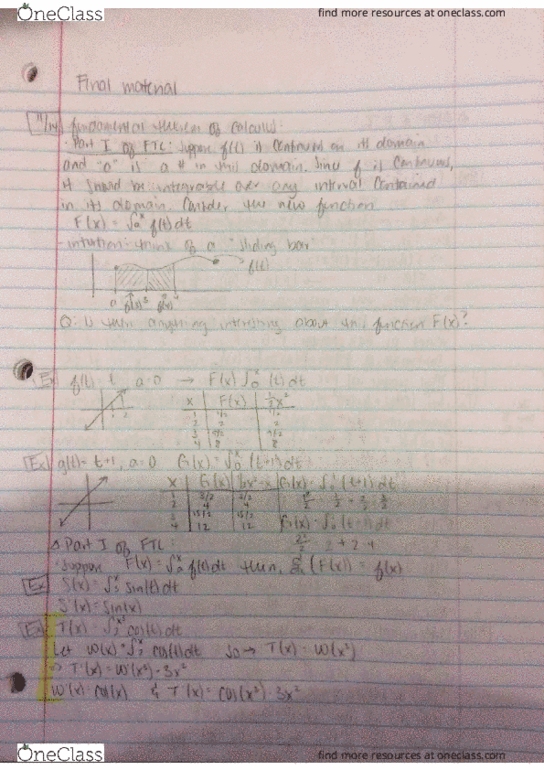 OneClass
find more resources at oneclass.com
Final material
11/14 fundamental theorem of calculus:
· Part I of FTC: suppose f(t) is continuous on its domain
and "a" is a # in this domain. Since f is continuous,
it should be integrable over any interval contained
in its domain. Consider the new function
F(x) = ∫ₐˣ f(t) dt
- intuition: think of a "sliding bar"
f(t)
a
Q: is there anything interesting about this function F(x)?
Ex f(t) = t, a=0 → F(x) ∫₀ˣ (t) dt
x F(x) ½x²
1 1/2 1/2
2 2 2
3 9/2 9/2
4 8 8
Ex g(t) = t+1, a=0 G(x) = ∫₀ˣ (t+1) dt
x G(x) G(x) = ∫₀ˣ (t+1) dt
1 3/2 3/2
2 4 4
3 15/2 15/2
4 12 12
Part I of FTC:
· suppose F(x) = ∫ₐˣ f(t) dt then, (F(x)) = f(x)
Ex S(x) = ∫ˣ sin(t) dt
S'(x) = sin(x)
Ex T(x) = ∫ cos(t) dt
Let w(x) = ∫ˣ cos(t) dt so → T(x) = w(x³)
T'(x) = w'(x³) · 3x²
w'(x) = cos(x) & T'(x) = cos(x³) · 3x²
OneClass
find more resources at oneclass.com